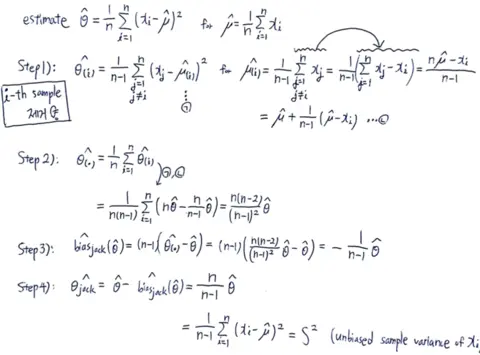 estimate θ̂ = 1/n Σ_{i=1}^{n} (xᵢ-μ̂)² for μ̂ = 1/n Σ_{i=1}^{n} xᵢ
Step1): θ̂₍ᵢ₎ = 1/(n-1) Σ_{j=1, j≠i}^{n} (xⱼ-μ̂₍ᵢ₎)² for μ̂₍ᵢ₎ = 1/(n-1) Σ_{j=1, j≠i}^{n} xⱼ = 1/(n-1) (Σ_{j=1}^{n} xⱼ-xᵢ) = (nμ̂-xᵢ)/(n-1)
i-th sample
= μ̂ + 1/(n-1) (μ̂-xᵢ) ...
Step 2): θ̂₍.₎ = 1/n Σ_{i=1}^{n} θ̂₍ᵢ₎
= 1/(n(n-1)) Σ_{i=1}^{n} (nθ̂ - n/(n-1) θ̂) = n(n-2)/(n-1)² θ̂
Step3): bias_jack(θ̂) = (n-1)(θ̂₍.₎-θ̂) = (n-1)(n(n-2)/(n-1)² θ̂ - θ̂) = - 1/(n-1) θ̂
Step4): θ̂_jack = θ̂ - bias_jack(θ̂) = n/(n-1) θ̂
= 1/(n-1) Σ_{i=1}^{n} (xᵢ-μ̂)² = S² (unbiased sample variance of xᵢ